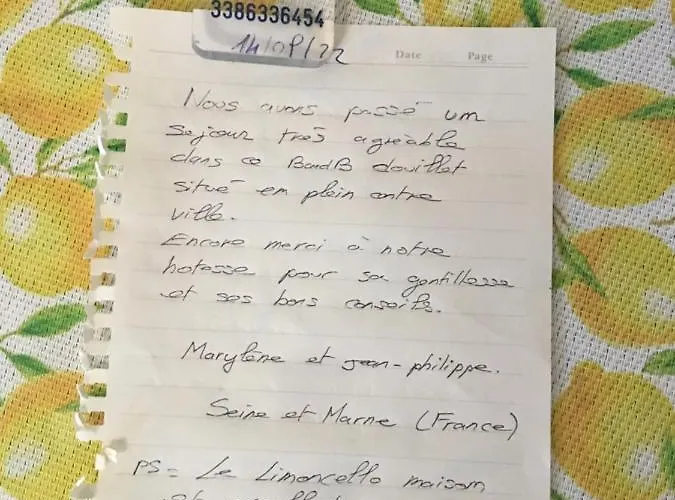 3386336454
14/08/22
Date Page
Nous avons passé um
sejour très agréable
dans ce BandB douillet
situé em plein centre
ville.
Encore merci à notre
hotesse pour sa gentillesse
et ses bons conseils.
Marylène et jean-philippe.
Seine et Marne (France)
PS = Le Limoncello maison